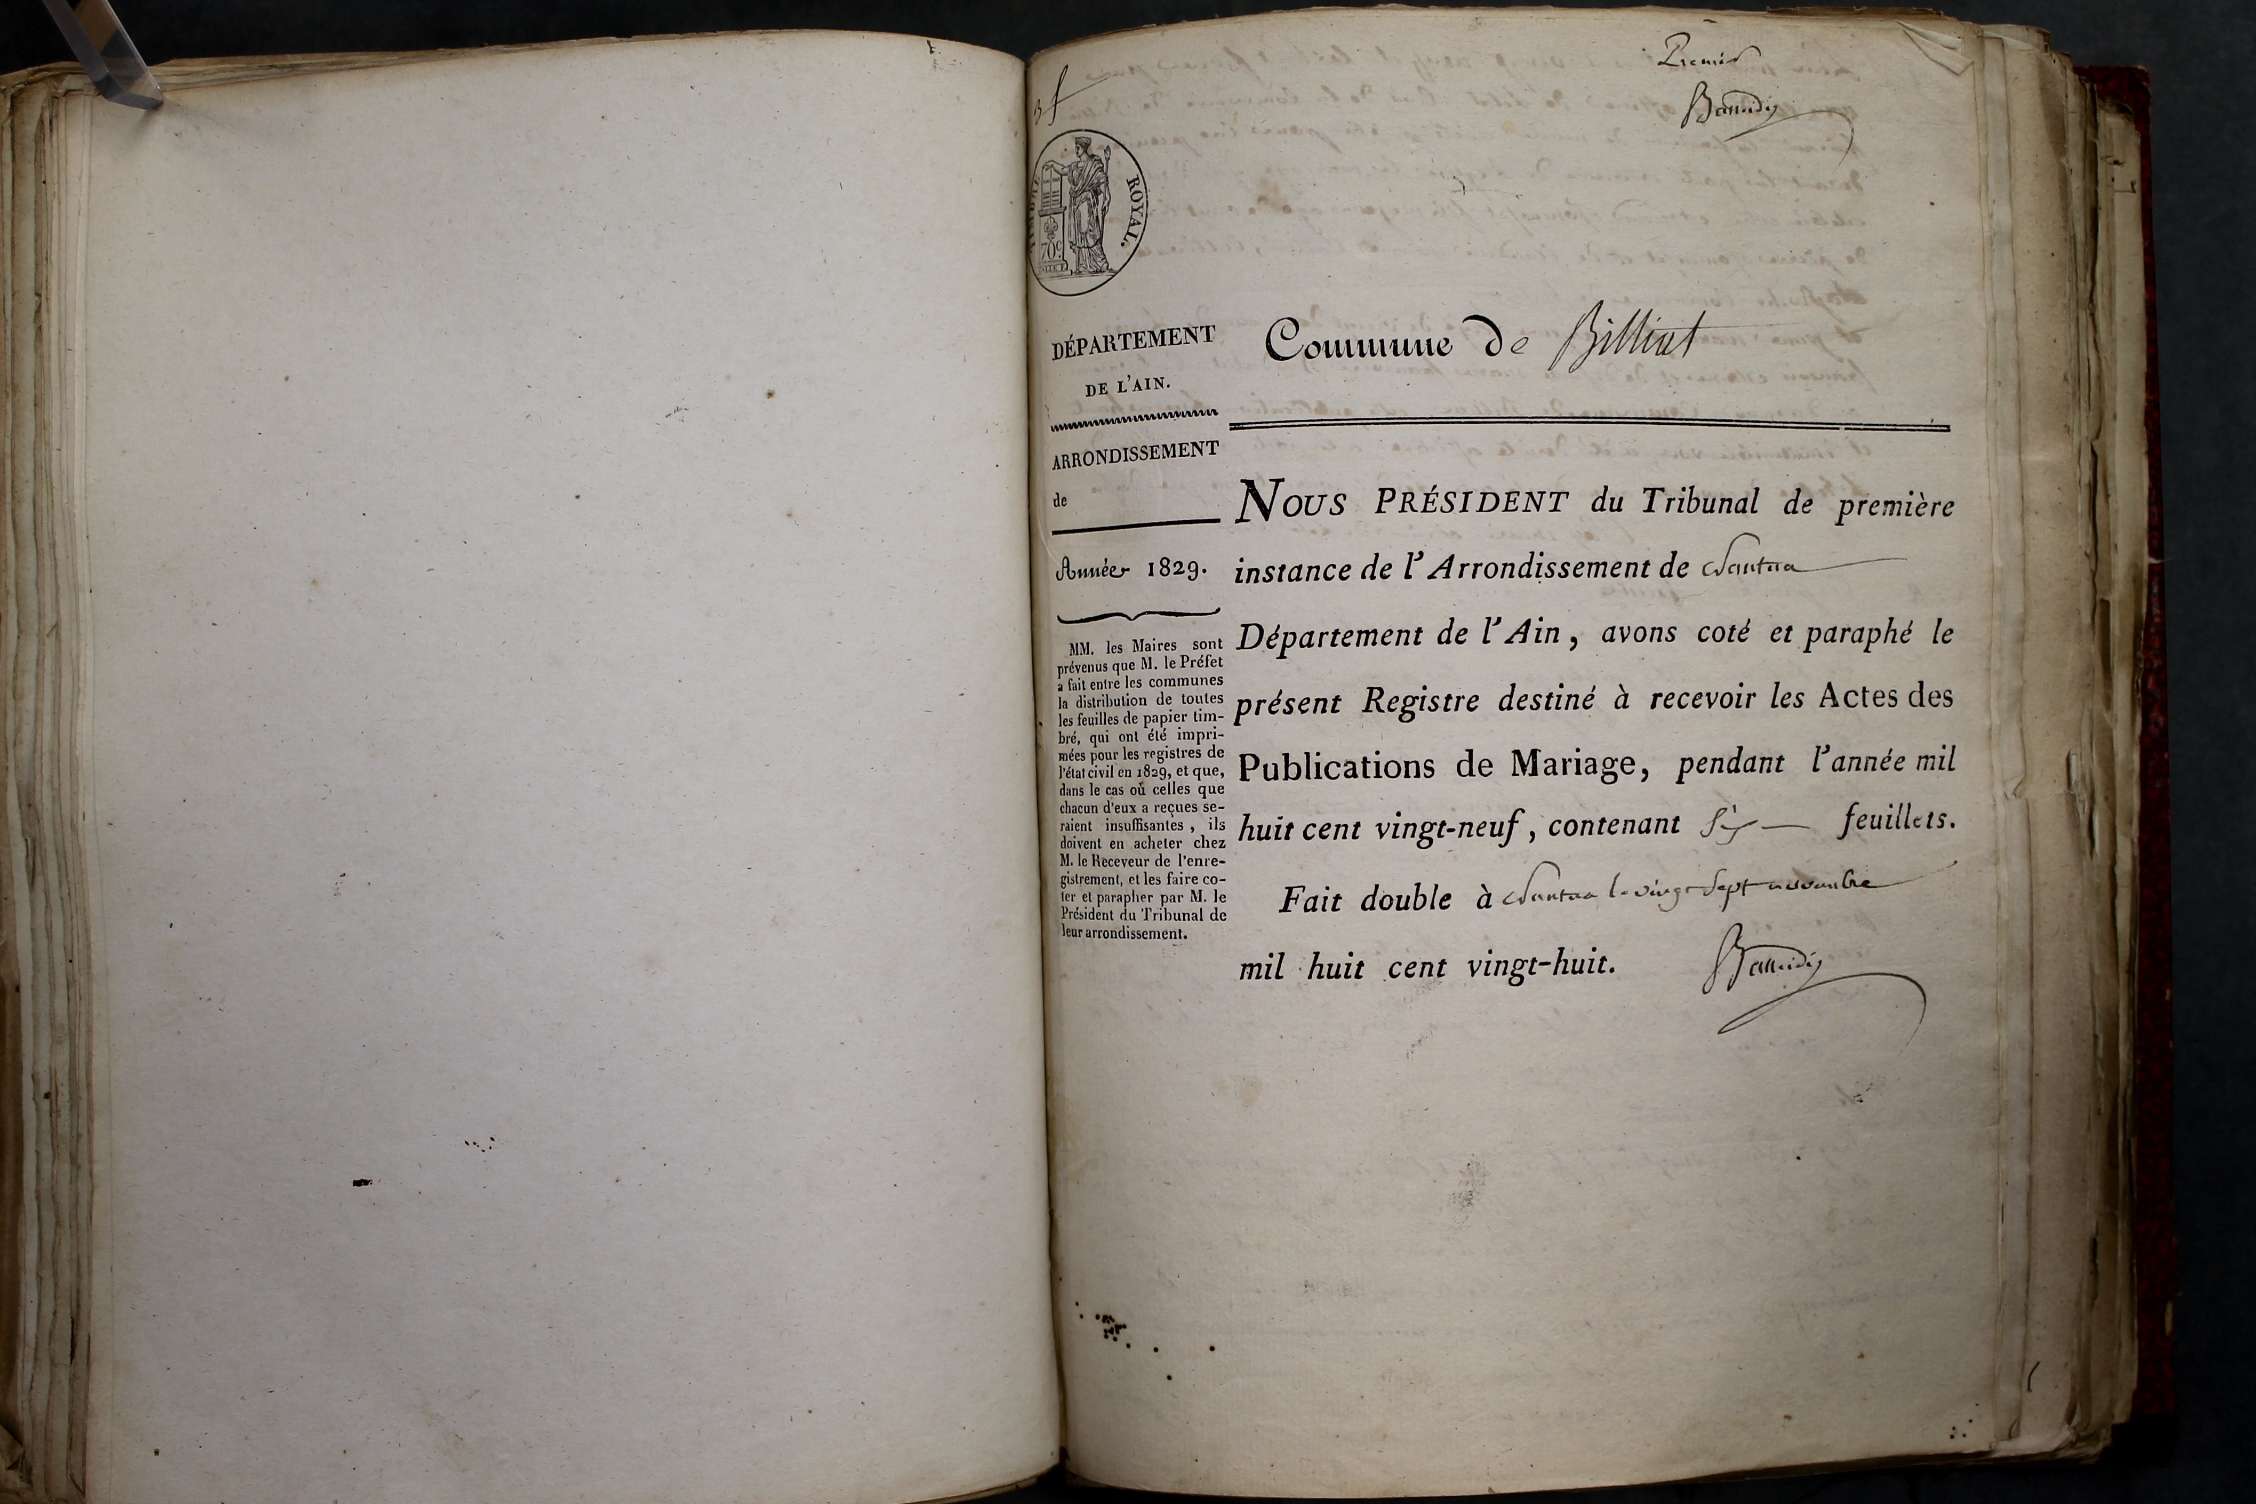 Premier
TIMBRE ROYAL.
70c
DÉPARTEMENT
DE L'AIN.
ARRONDISSEMENT
de
Année 1829.
MM. les Maires sont
prévenus que M. le Préfet
a fait entre les communes
la distribution de toutes
les feuilles de papier tim-
bré, qui ont été impri-
mées pour les registres de
l'état civil en 1829, et que,
dans le cas où celles que
chacun d'eux a reçues se-
raient insuffisantes, ils
doivent en acheter chez
M. le Receveur de l'enre-
gistrement, et les faire co-
ter et parapher par M. le
Président du Tribunal de
leur arrondissement.
Commune de Billiat
NOUS PRÉSIDENT du Tribunal de première
instance de l'Arrondissement de Nantua
Département de l'Ain, avons coté et paraphé le
présent Registre destiné à recevoir les Actes des
Publications de Mariage, pendant l'année mil
huit cent vingt-neuf, contenant six feuillets.
Fait double à Nantua le vingt sept novembre
mil huit cent vingt-huit.